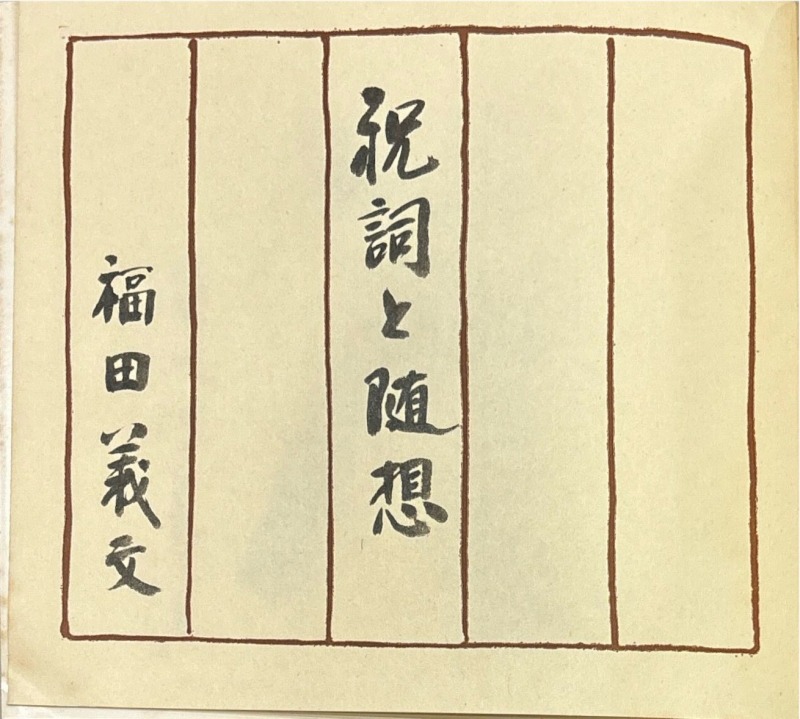 祝詞と随想
福田義文